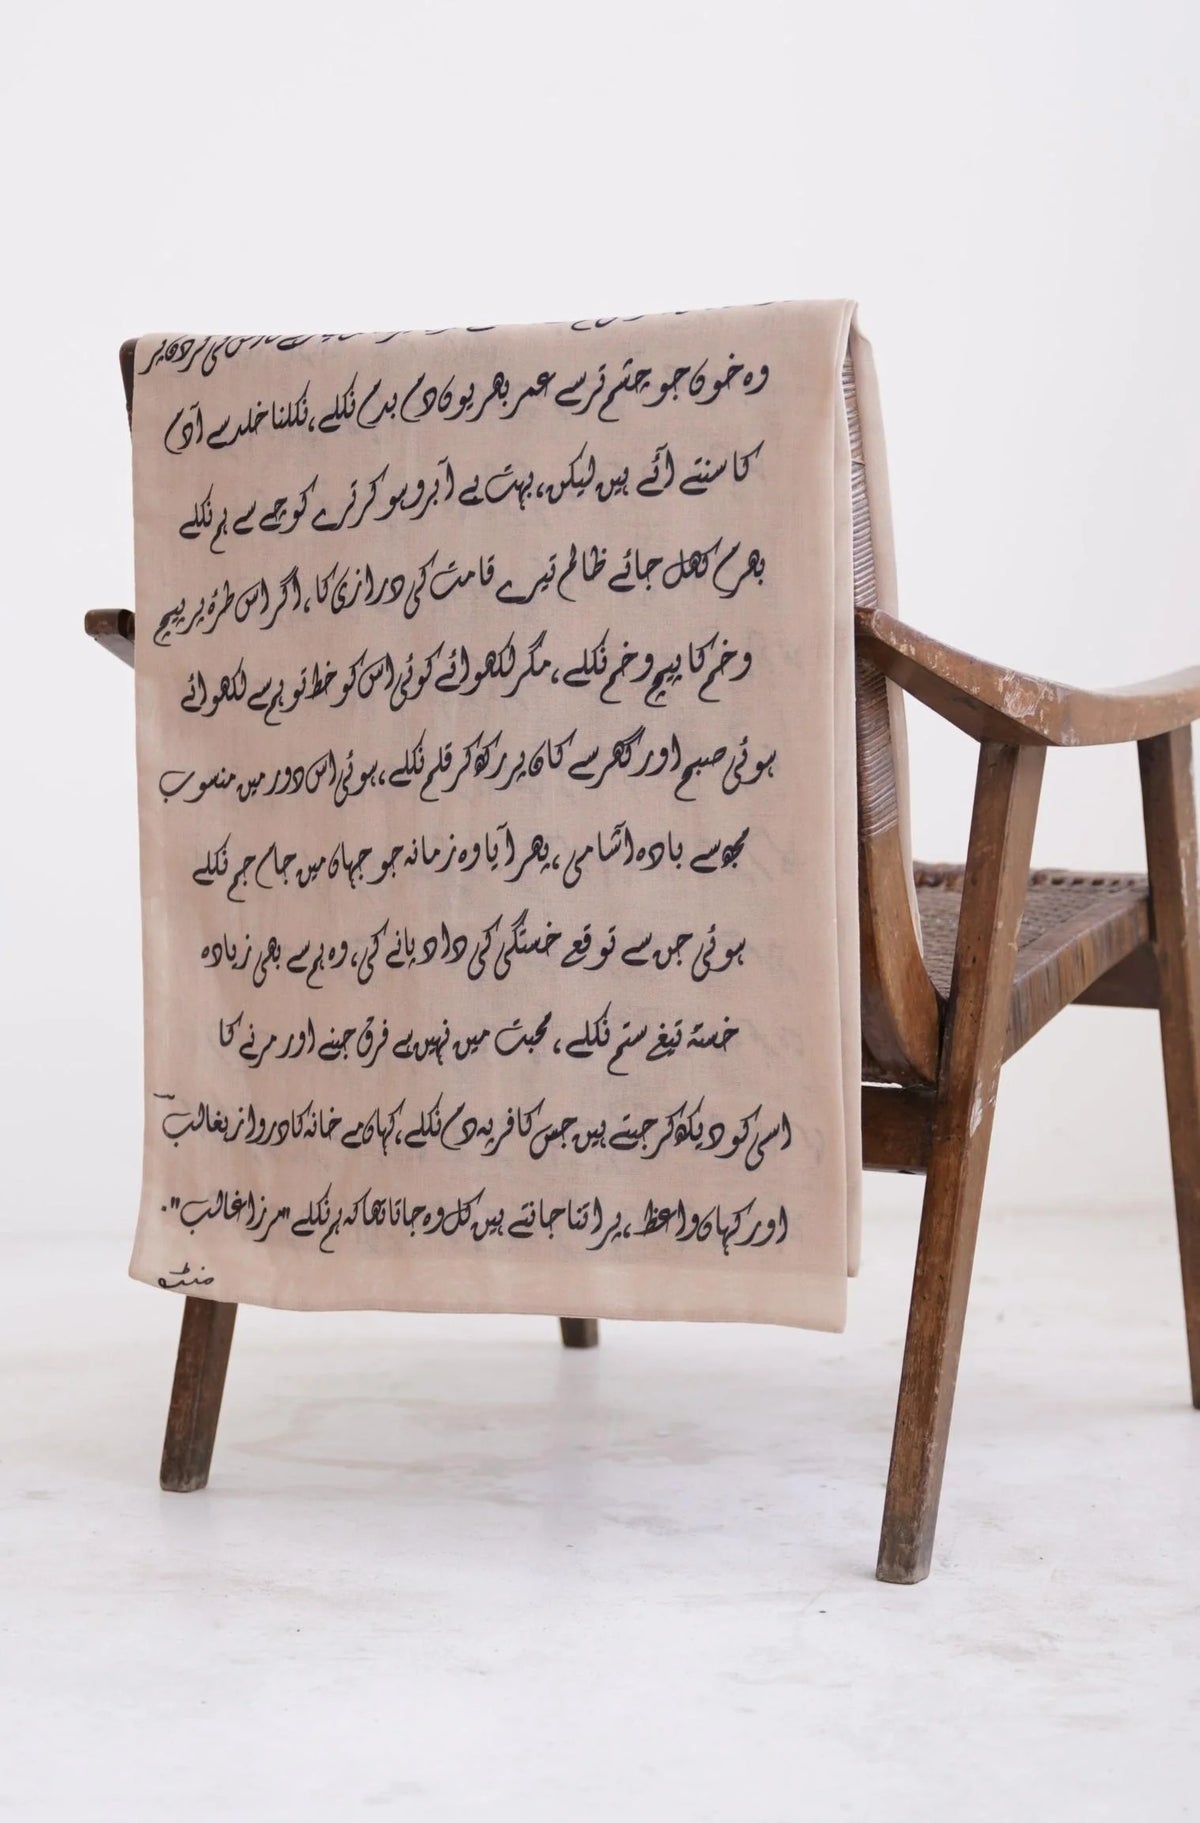 کی گردن پر
وہ خون جو چشم تر سے عمر بھر یوں دم بدم نکلے، نکلنا خلد سے آدم
کا سنتے آئے ہیں لیکن، بہت بے آبرو ہو کر ترے کوچے سے ہم نکلے
بھرم کھل جائے ظالم تیرے قامت کی درازی کا، اگر اس طرۂ پر پیچ
و خم کا پیچ و خم نکلے، مگر لکھوائے کوئی اس کو خط تو ہم سے لکھوائے
ہوئی صبح اور گھر سے کان پر رکھ کر قلم نکلے، ہوئی اس دور میں منسوب
مجھ سے بادہ آشامی، پھر آیا وہ زمانہ جو جہان میں جام جم نکلے
ہوئی جن سے توقع خستگی کی داد پانے کی، وہ ہم سے بھی زیادہ
خستۂ تیغ ستم نکلے، محبت میں نہیں ہے فرق جینے اور مرنے کا
اسی کو دیکھ کر جیتے ہیں جس کافر پہ دم نکلے، کہاں مے خانہ کا دروازہ غالبؔ
اور کہاں واعظ، پر اتنا جانتے ہیں کل وہ جاتا تھا کہ ہم نکلے "مرزا غالب".
منٹو